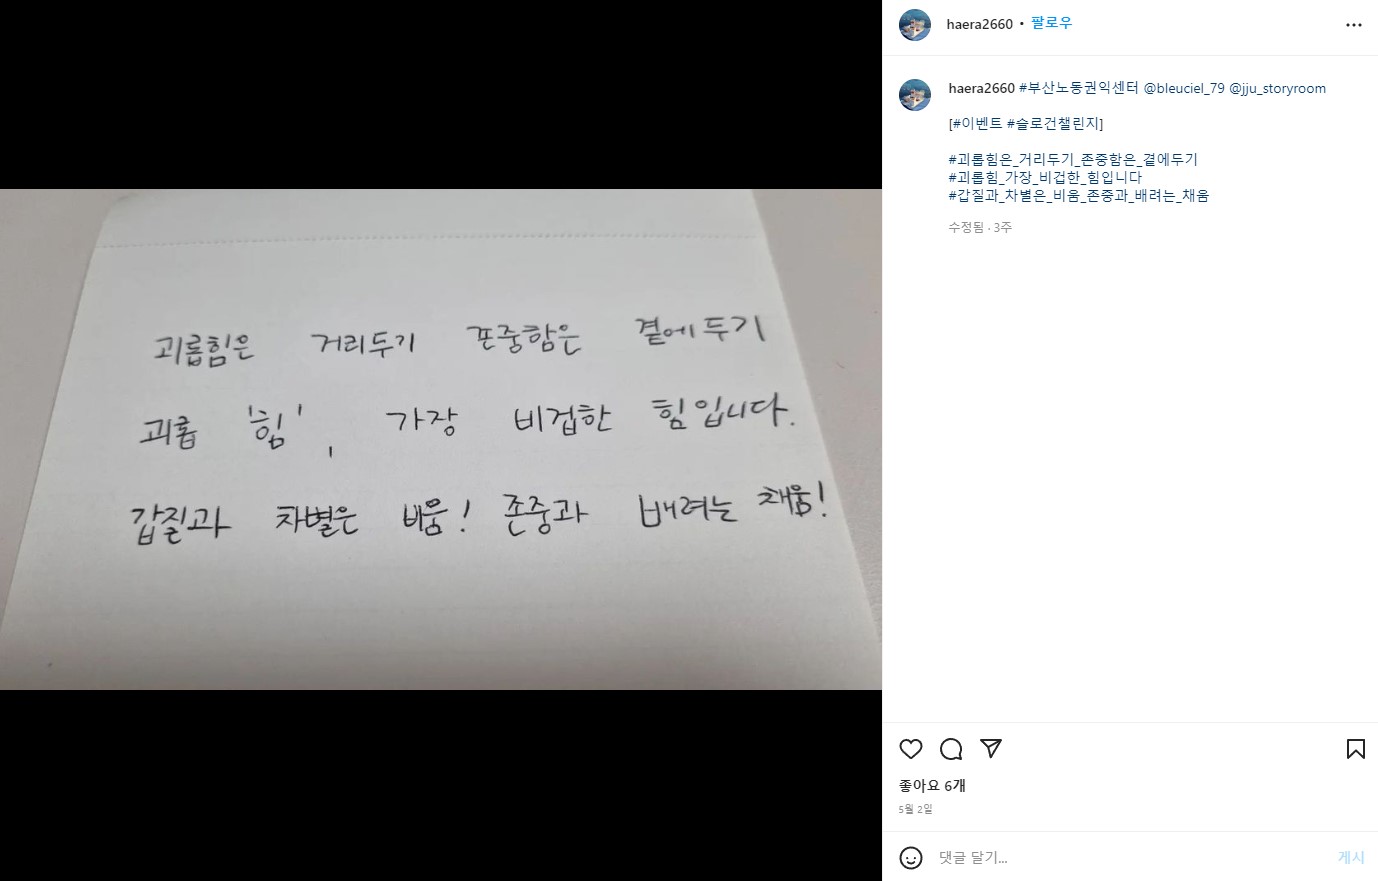 괴롭힘은 거리두기 존중함은 곁에두기
괴롭 '힘', 가장 비겁한 힘입니다.
갑질과 차별은 비움! 존중과 배려는 채움!
haera2660 • 팔로우
haera2660 #부산노동권익센터 @bleuciel_79 @jju_storyroom
[#이벤트 #슬로건챌린지]
#괴롭힘은_거리두기_존중함은_곁에두기
#괴롭힘_가장_비겁한_힘입니다
#갑질과_차별은_비움_존중과_배려는_채움
수정됨 · 3주
좋아요 6개
5월 2일
댓글 달기...
게시